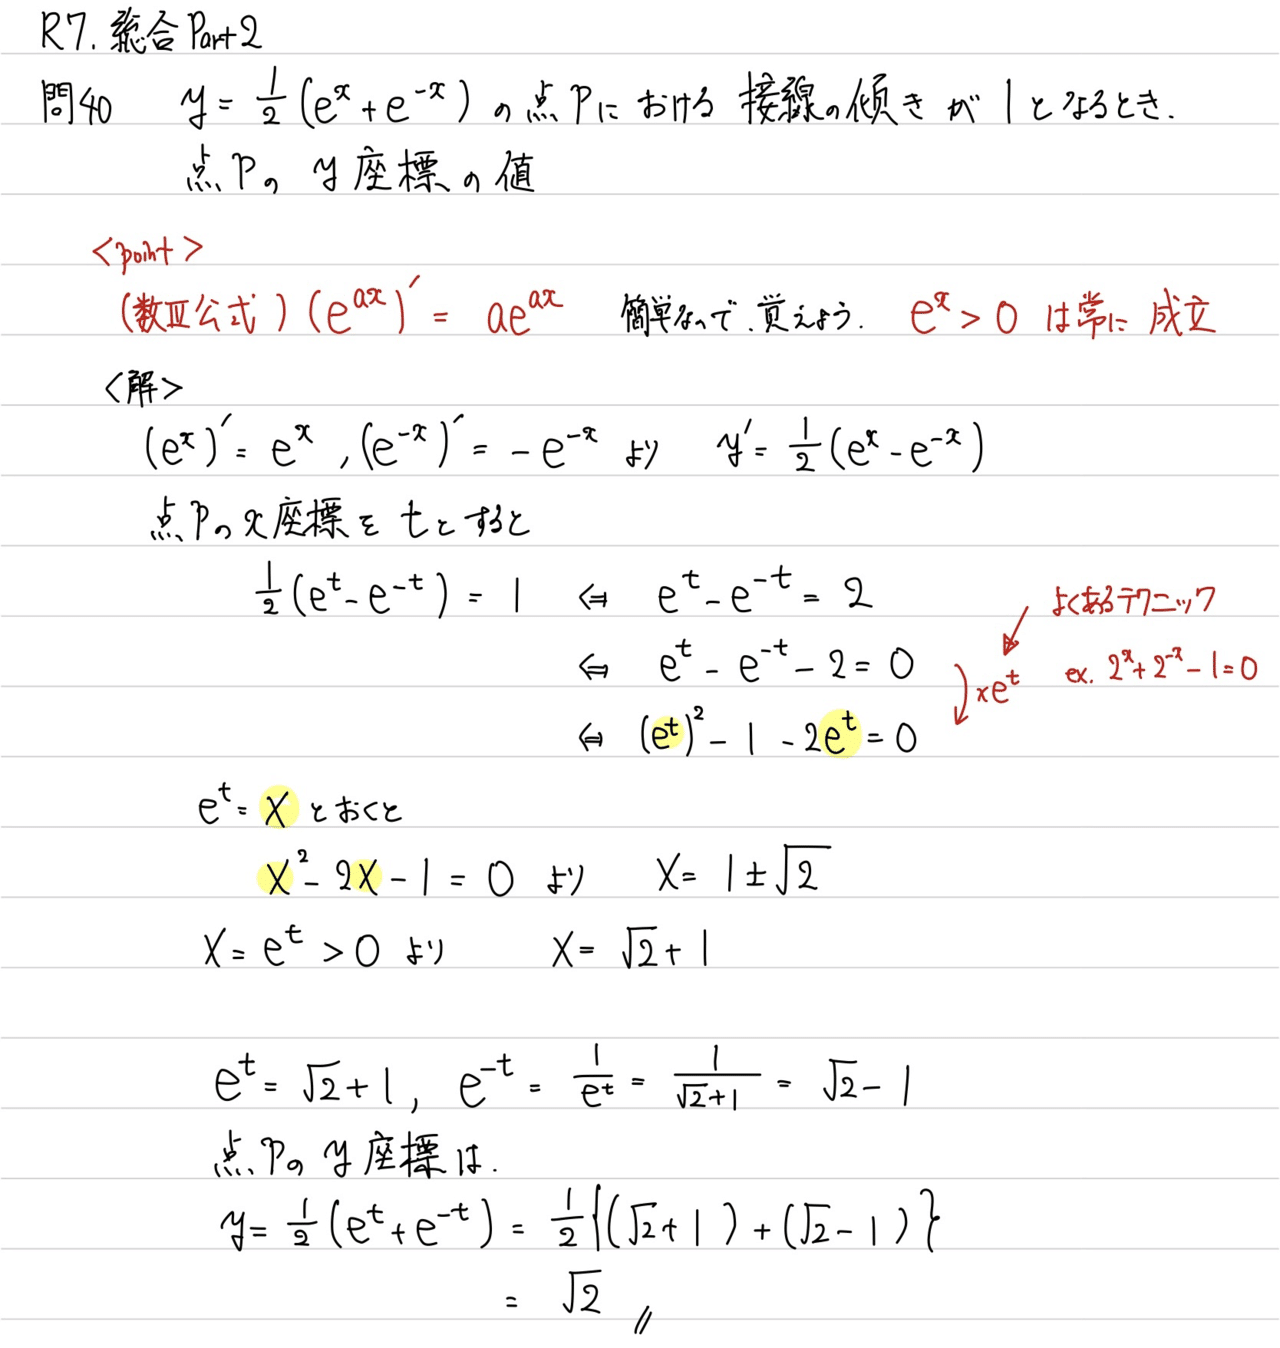 R7. 総合 Part2
問40 y = 1/2 (e^x + e^-x) の点Pにおける 接線の傾きが 1となるとき.
点Pの y座標の値
<point>
(数Ⅲ公式) (e^ax)' = ae^ax 簡単なので、覚えよう. e^x > 0 は常に成立
<解>
(e^x)' = e^x , (e^-x)' = -e^-x より y' = 1/2 (e^x - e^-x)
点Pのx座標を tとすると
1/2 (e^t - e^-t) = 1 ⇔ e^t - e^-t = 2 よくあるテクニック
⇔ e^t - e^-t - 2 = 0 ×e^t ex. 2^x + 2^-x - 1 = 0
⇔ (e^t)^2 - 1 - 2e^t = 0
e^t = X とおくと
X^2 - 2X - 1 = 0 より X = 1 ± √2
X = e^t > 0 より X = √2 + 1
e^t = √2 + 1, e^-t = 1/e^t = 1/(√2+1) = √2 - 1
点Pの y座標は.
y = 1/2 (e^t + e^-t) = 1/2 {(√2 + 1) + (√2 - 1)}
= √2 //